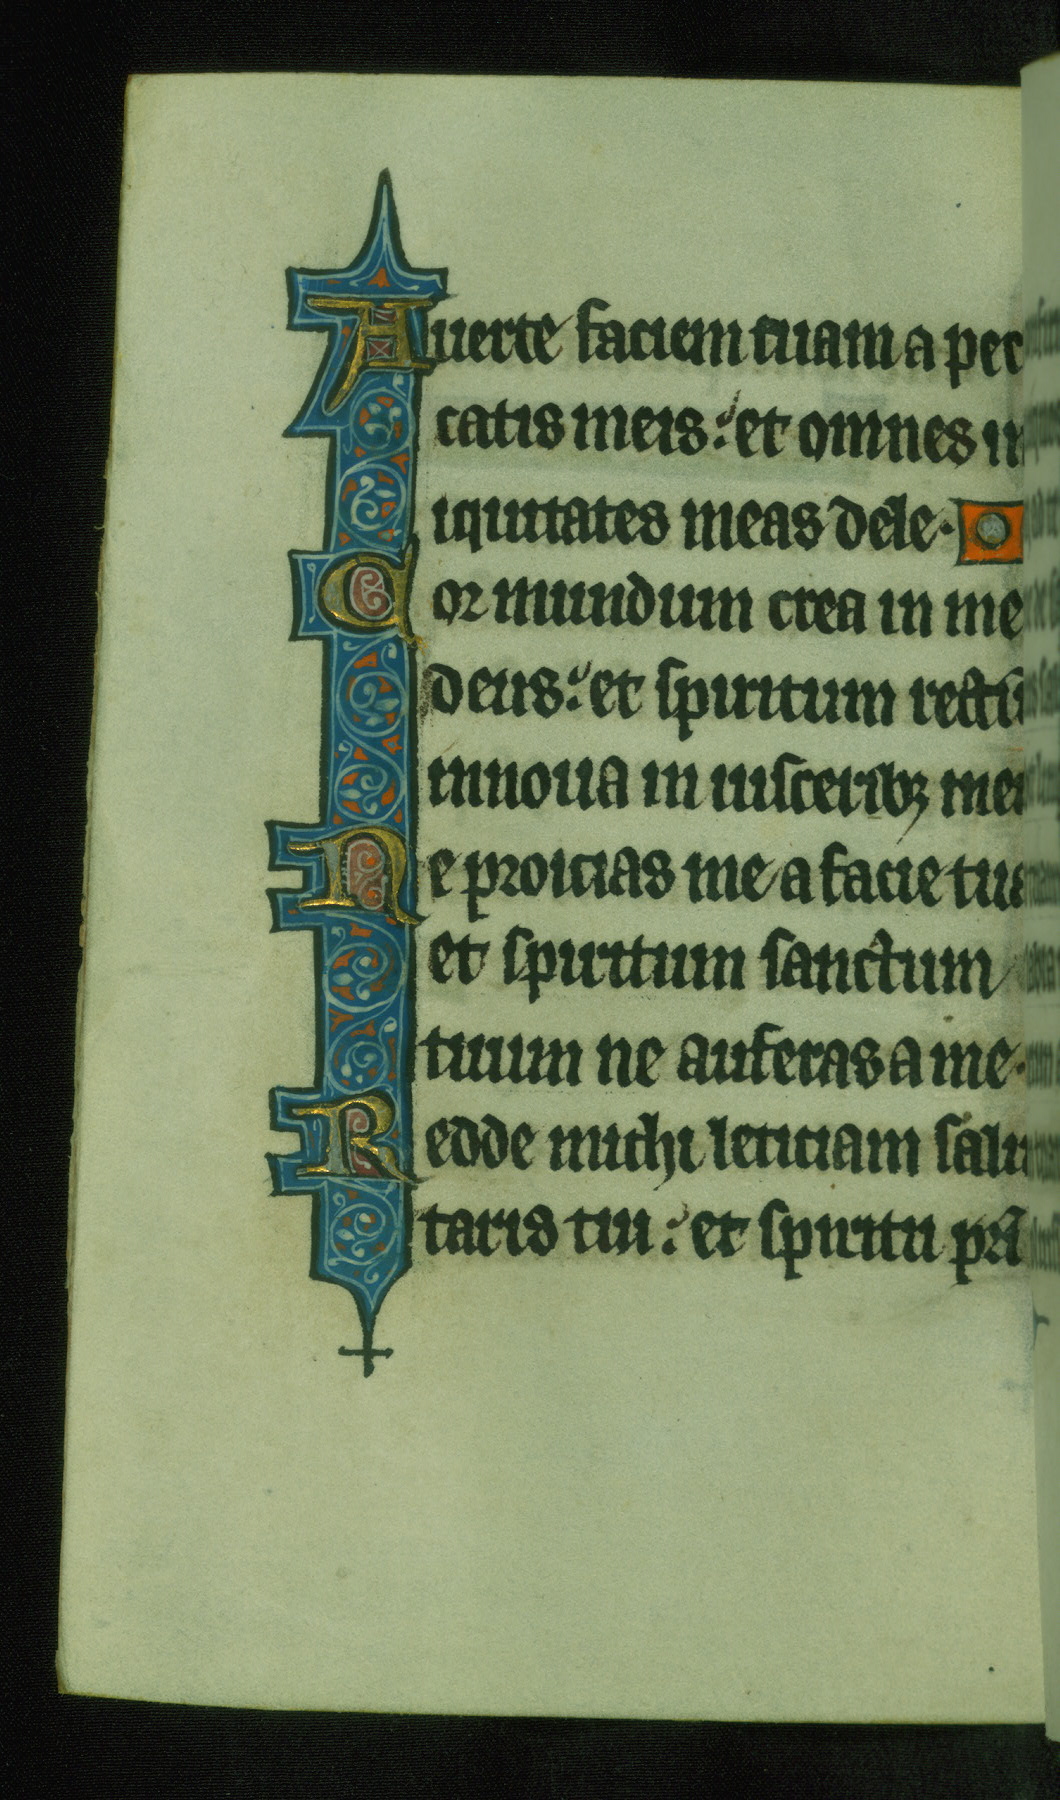 Auerte faciem tuam a pec
catis meis: et omnes in
iquitates meas dele.
Cor mundum crea in me
deus: et spiritum rectū
innoua in uisceribꝫ mei
Ne proicias me a facie tua
et spiritum sanctum
tuum ne auferas a me.
Redde michi leticiam salu
taris tui: et spiritu pri